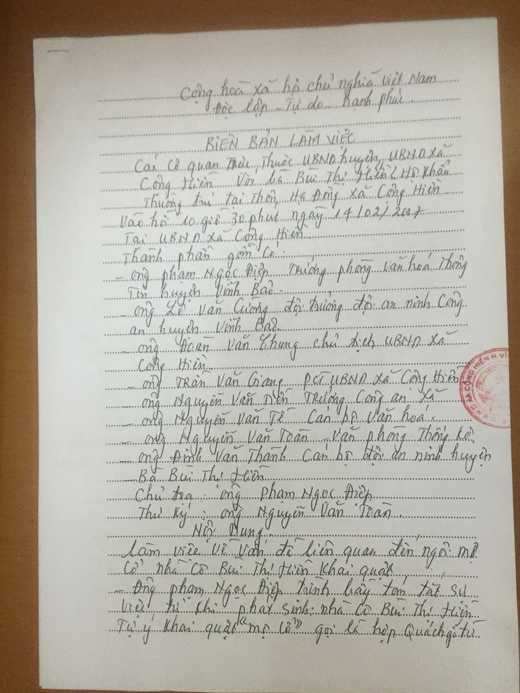 Cộng hoà xã hộ chủ nghĩa Việt Nam
Độc lập - Tự do - Hạnh phúc.
BIÊN BẢN LÀM VIỆC
Các Cơ quan Trực thuộc UBND huyện, UBND xã
Cộng Hiền Với bà Bùi Thị Hiền (Hộ Khẩu
Thường trú tại Thôn Hạ Đồng xã Cộng Hiền
Vào hồ 10 giờ 30 phút ngày 14/02/2007
Tại UBND xã Cộng Hiền
Thành phần gồm Có:
- ông phạm Ngọc Điệp Trưởng phòng văn hoá Thông
Tin huyện Vĩnh Bảo.
- ông Lê Văn Cường đội trưởng đội an ninh Công
an huyện Vĩnh Bảo.
- ông Đoàn Văn Chung chủ tịch UBND xã
Cộng Hiền
- ông Trần Văn Giang PCT UBND xã Cộng Hiền
- ông Nguyễn Văn Tiến Trưởng Công an xã
- ông Nguyễn Văn Tế Cán bộ Văn hoá.
- ông Nguyễn Văn Toàn Văn phòng Thống kê
- ông Đinh Văn Thành Cán bộ đội an ninh huyện
- Bà Bùi Thị Hiền
Chủ toạ: ông phạm Ngọc Điệp
Thư Ký: ông Nguyễn Văn Toàn
Nội Dung
Làm việc về vấn đề liên quan đến ngôi mộ
Cổ nhà Cô Bùi Thị Hiền Khai quật
- Ông phạm Ngọc Điệp trình bầy tóm tắt Sự
Việc từ khi phát sinh: nhà Cô Bùi Thị Hiền
Tự ý Khai quật "mộ Cổ" gọi là hộp Quách gỗ từ